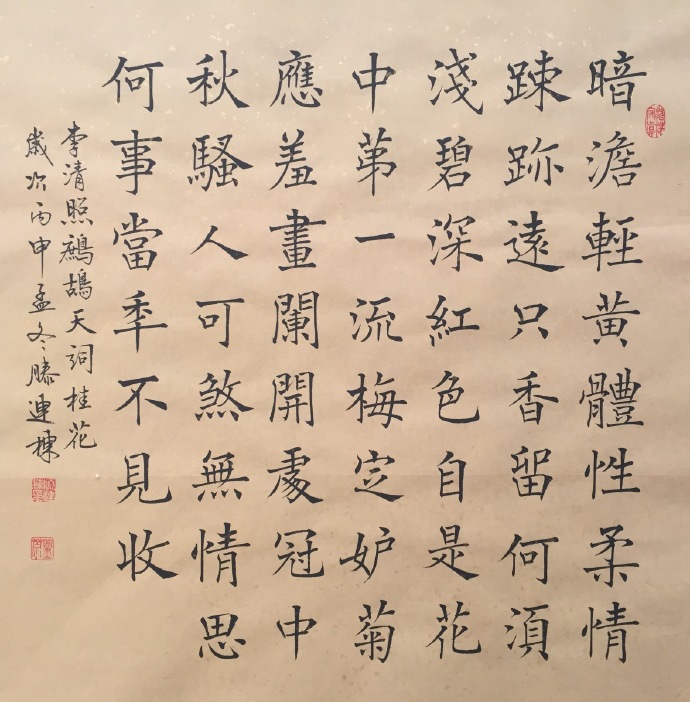 暗澹輕黃體性柔情
踈跡遠只香留何須
淺碧深紅色自是花
中第一流梅定妒菊
應羞畫闌開處冠中
秋騷人可煞無情思
何事當年不見收
李清照鷓鴣天詞桂花
歲次丙申孟冬滕連棟